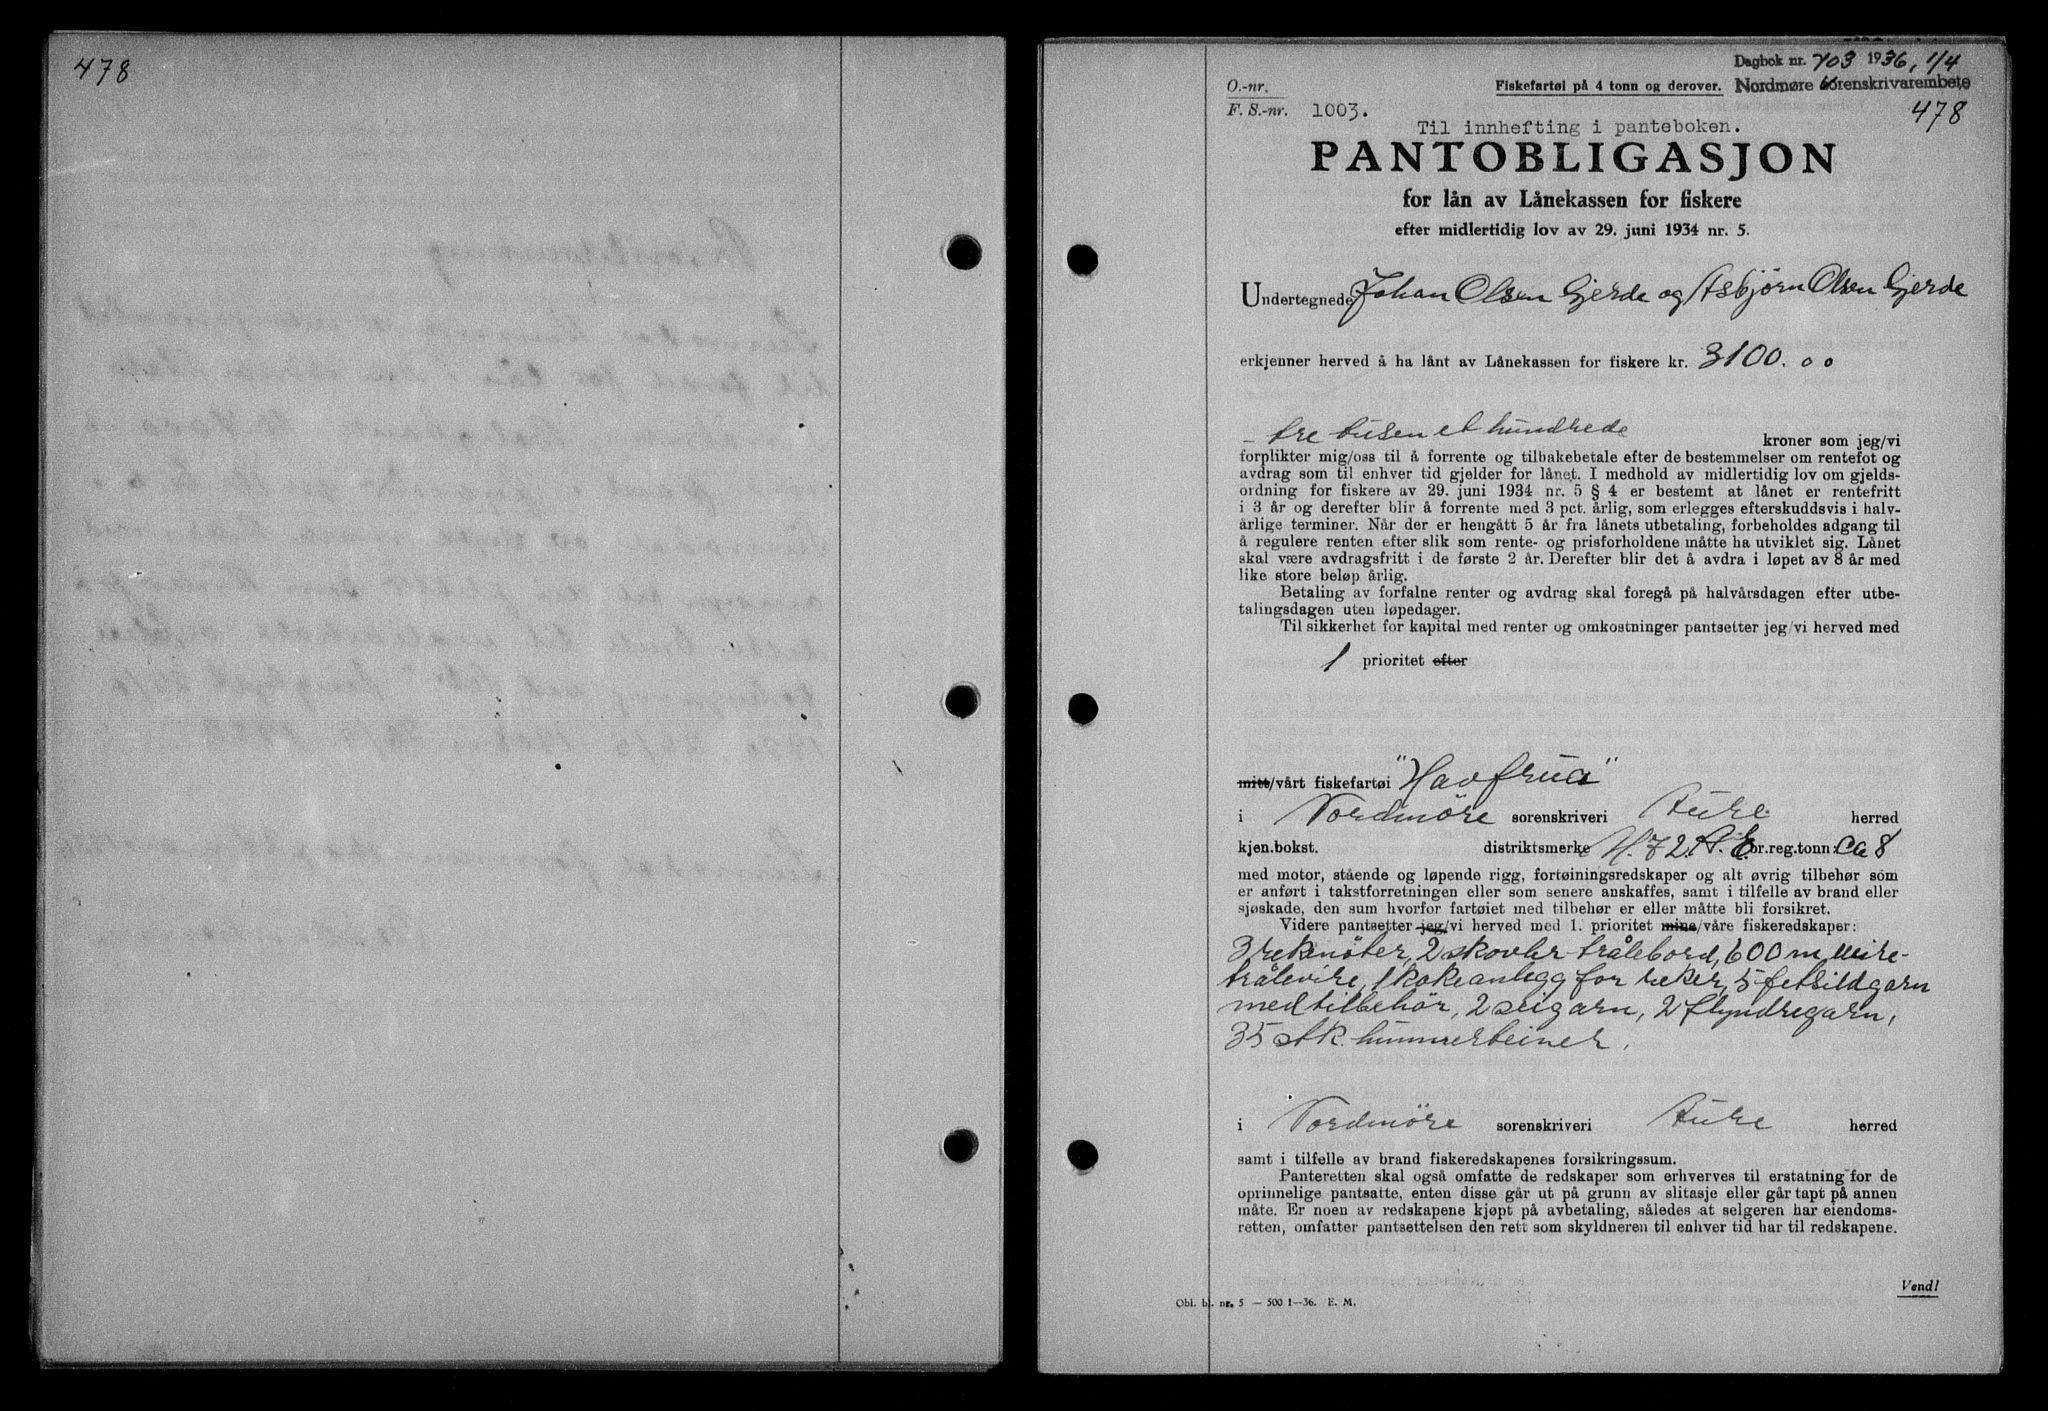 478
Dagbok nr. 703 1936, 1/4
O.-nr.
Fiskefartøi på 4 tonn og derover. Nordmøre sorenskrivarembete
F. S.-nr. 1003.
478
Til innhefting i panteboken.
PANTOBLIGASJON
for lån av Lånekassen for fiskere
efter midlertidig lov av 29. juni 1934 nr. 5.
Undertegnede Johan Olsen Gjerde og Asbjørn Olsen Gjerde
erkjenner herved å ha lånt av Lånekassen for fiskere kr. 3100.00
- tre tusen et hundrede kroner som jeg/vi
forplikter mig/oss til å forrente og tilbakebetale efter de bestemmelser om rentefot og
avdrag som til enhver tid gjelder for lånet. I medhold av midlertidig lov om gjelds-
ordning for fiskere av 29. juni 1934 nr. 5 § 4 er bestemt at lånet er rentefritt
i 3 år og derefter blir å forrente med 3 pct. årlig, som erlegges efterskuddsvis i halv-
årlige terminer. Når der er hengått 5 år fra lånets utbetaling, forbeholdes adgang til
å regulere renten efter slik som rente- og prisforholdene måtte ha utviklet sig. Lånet
skal være avdragsfritt i de første 2 år. Derefter blir det å avdra i løpet av 8 år med
like store beløp årlig.
Betaling av forfalne renter og avdrag skal foregå på halvårsdagen efter utbe-
talingsdagen uten løpedager.
Til sikkerhet for kapital med renter og omkostninger pantsetter jeg/vi herved med
1 prioritet efter
mitt/vårt fiskefartøi "Havfrua"
i Nordmöre sorenskriveri Aure herred
kjen.bokst. distriktsmerke M. 72. A. E. br.reg.tonn: ca 8
med motor, stående og løpende rigg, fortøiningsredskaper og alt øvrig tilbehør som
er anført i takstforretningen eller som senere anskaffes, samt i tilfelle av brand eller
sjøskade, den sum hvorfor fartøiet med tilbehør er eller måtte bli forsikret.
Videre pantsetter jeg/vi herved med 1. prioritet mine/våre fiskeredskaper:
3 reknöter, 2 skovler trålebord, 600 m wire-
trålevire, 1 kokeanlegg for reker, 5 fetsildgarn
med tilbehör, 2 seigarn, 2 flyndregarn,
35 stk. hummerteiner.
i Nordmöre sorenskriveri Aure herred
samt i tilfelle av brand fiskeredskapenes forsikringssum.
Panteretten skal også omfatte de redskaper som erhverves til erstatning for de
oprinnelige pantsatte, enten disse går ut på grunn av slitasje eller går tapt på annen
måte. Er noen av redskapene kjøpt på avbetaling, således at selgeren har eiendoms-
retten, omfatter pantsettelsen den rett som skyldneren til enhver tid har til redskapene.
Vend!
Obl. bl. nr. 5 — 500 1—36. E. M.